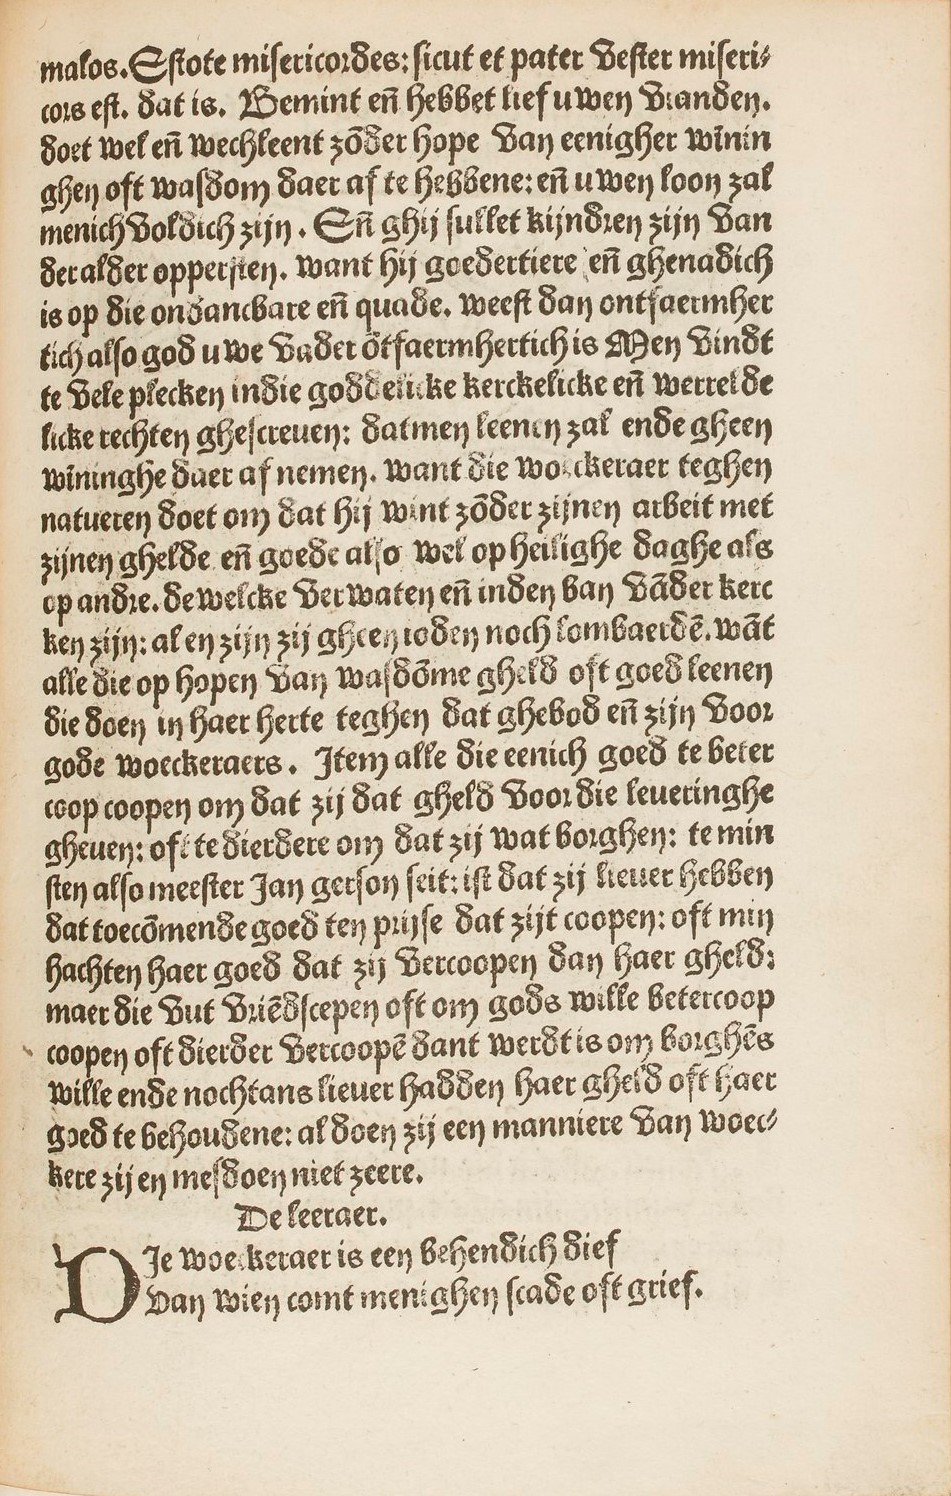 malos. Estote misericordes: sicut et pater vester miseri⸗
cors est. dat is. Bemint eñ hebbet lief uwen vianden.
doet wel eñ wechleent zōder hope van eenigher wīnin
ghen oft wasdom daer af te hebbene: eñ uwen loon zal
menichvoldich zijn. Eñ ghij sullet kijndren zijn van
der alder oppersten. want hij goedertiere eñ ghenadich
is op die ondancbare eñ quade. weest dan ontfaermher
tich also god uwe vader ōtfaermhertich is Men vindt
te vele plecken indie goddelicke kerckelicke eñ werrelde
licke rechten ghescreven: datmen leenen zal ende gheen
wīninghe daer af nemen. want die woeckeraer teghen
natueren doet om dat hij wint zōder zijnen arbeit met
zijnen ghelde eñ goede also wel op heilighe daghe als
op andre. de welcke verwaten eñ inden ban vāder kerc
ken zijn: al en zijn zij gheen ioden noch lombaerdē. wāt
alle die op hopen van wasdōme gheld oft goed leenen
die doen in haer herte teghen dat ghebod eñ zijn voor
gode woeckeraers. Item alle die eenich goed te beter
coop coopen om dat zij dat gheld voor die leveringhe
gheven: oft te dierdere om dat zij wat borghen: te min
sten also meester Jan gerson seit: ist dat zij liever hebben
dat toecōmende goed ten prijse dat zijt coopen: oft min
hachten haer goed dat zij vercoopen dan haer gheld:
maer die vut vriēdscepen oft om gods wille betercoop
coopen oft dierder vercoopē dant werdt is om borghēs
wille ende nochtans liever hadden haer gheld oft haer
goed te behoudene: al doen zij een manniere van woec⸗
kere zij en mesdoen niet zeere.
De leeraer.
DIe woeckeraer is een behendich dief
Van wien comt menighen scade oft grief.